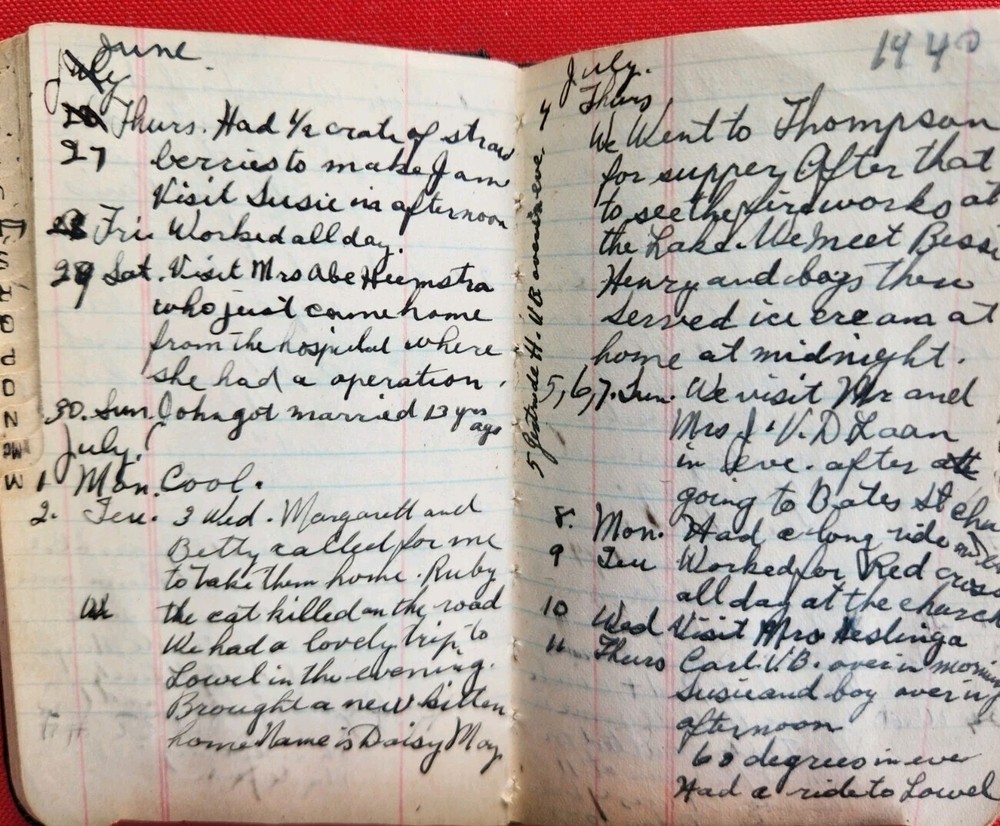 June.
July
Thurs. Had 1/2 crate of straw
27 berries to make Jam
Visit Susie in afternoon
28 Fri Worked all day.
29 Sat. Visit Mrs Abe Hiemstra
who just came home
from the hospital where
she had a operation.
30. Sun. John got married 13 yrs
ago
July.
1 Mon. Cool.
2. Teu. 3 Wed. Margarett and
Betty called for me
to take them home. Ruby
the cat killed on the road
We had a lovely trip to
Lowel in the evening.
Brought a new kitten
home Name is Daisy May
1940
July.
4 Thurs,
We Went to Thompson
for supper After that
to see the fireworks at
the Lake. We meet Bessi
Henry and boys they
served ice cream at
home at midnight.
5, 6, 7. Sun. We visit Mr and
Mrs J. V. D Laan
in Eve. after
going to Bates St chu
8. Mon. Had a long ride
9 Teu Worked for Red cross
all day at the church
10 Wed Visit Mrs Heslinga
11 Thurs Carl. V.B. over in morning
Susie and boy over in
afternoon
68 degrees in eve
Had a ride to Lowel
5 Gertrude H. V B over in eve.